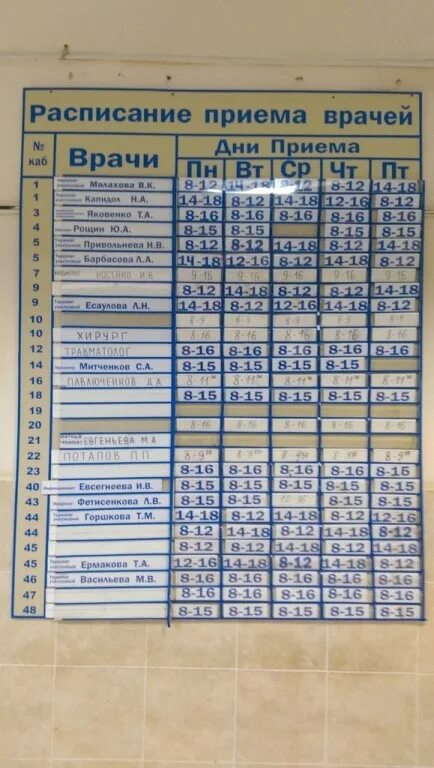 Расписание приема врачей
№ каб Врачи Дни Приема
Пн Вт Ср Чт Пт
1 Терапевт участковый Малахова В.К. 8-12 14-18 8-12 8-12 14-18
1 Терапевт участковый Капидол Н.А. 14-18 8-12 14-18 12-16 8-12
3 Яковенко Т.А. 8-16 8-16 8-16 8-16 8-16
4 Рощин Ю.А. 8-15 8-15 8-15 8-15
5 Терапевт участковый Привольнева Н.В. 8-12 8-12 14-18 8-12 14-18
5 Терапевт участковый Барбасова Л.А. 14-18 12-16 8-12 14-18 8-12
7 НОСЕНКО И.В. 9-16 9-16 9-16 9-16 9-16
9 8-12 14-18 8-12 8-12 14-18
9 Терапевт участковый Есаулова Л.Н. 14-18 8-12 12-16 14-18 8-12
10 8-9 8-9 8-9 8-9 8-9
10 ХИРУРГ 8-16 8-16 8-16 8-16 8-16
12 ТРАВМАТОЛОГ 8-16 8-16 8-16 8-16 8-16
14 Митченков С.А. 8-15 8-15 8-15 8-15
16 ПАВЛЮЧЕНКОВ Д.А 8-11 8-11 8-11 8-11 8-11
18 8-15 8-15 8-15 8-15 8-15
19
20 8-16 8-16 8-16 8-16 8-16
21 ЕВГЕНЬЕВА М А
22 ПОТАПОВ П.П 8-9 8-9 8-9 8-9 8-9
23 8-16 8-16 8-16 8-16 8-16
40 Инфекционист Евсегнеева И.В. 8-15 8-15 8-15 8-15 8-15
43 Фетисенкова Л.В. 8-15 8-15 8-15 8-15
44 Терапевт участковый Горшкова Т.М. 14-18 8-12 14-18 8-12 12-16
44 8-12 14-18 8-12 14-18 8-12
45 8-12 8-12 14-18 8-12 14-18
45 Терапевт участковый Ермакова Т.А. 12-16 14-18 8-12 14-18 8-12
46 Терапевт участковый Васильева М.В. 8-16 8-16 8-16 8-16 8-16
47 8-16 8-16 8-16 8-16 8-16
48 8-15 8-15 8-15 8-15 8-15